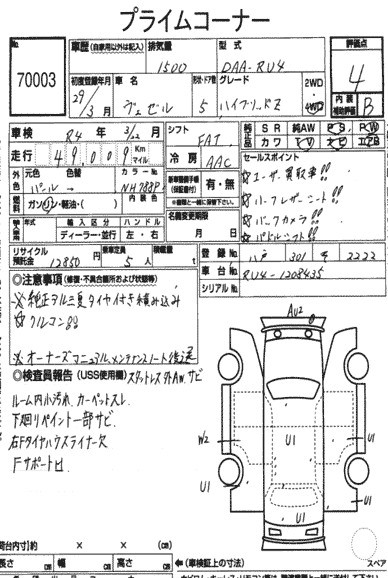 プライムコーナー
No.
70003
車歴 (自家用以外は記入)
排気量
1500
型式
DAA-RU4
評価点
4
初度登録年月
29年
3月
車名
ヴェゼル
形状・ドア数
5
グレード
ハイブリッドZ
2WD
4WD
内装
B
車検 R4年 3/22月
シフト
FAT
純正品
SR 純AW PS PW
カワ TV ナビ エアB
走行 49,009 Km マイル
冷房
AAC
セールスポイント
☆ユーザー買取車!!
☆ハーフレザーシート!!
☆バックカメラ!!
☆パドルシフト!!
外色
元色 色替
パール→
カラーNo.
NH788P
燃料
ガソリン・軽油・( )
内装色
新車整備手帳
(保証書付)
有・無
※一緒に保管下さい。
輸入車
年式 輸入区分 ハンドル
ディーラー・並行 左・右
名義変更期限
月 日
リサイクル預託金
12850円
乗車定員
5人
積載量
t
登録No.
八戸 301 す 2222
車台No.
RU4-1208435
シリアルNo.
◎注意事項 (修復・不具合箇所および状態等)
☆純正アルミ夏タイヤ付き積み込み
☆クルコン
☆オーナーズマニュアル,メンテナンスノート後送
◎検査員報告 (USS使用欄) スタットレス 外AW サビ
ルーム内小汚れ カーペットスレ
下廻りペイント一部サビ
右Fタイヤハウスライナー欠
Fサポート凹
AU2
W2
U1
U1
U1
U1
U1
荷台内寸)約 × × (cm)
長さ cm 幅 cm 高さ cm
←(車検証上の寸法)
スペア